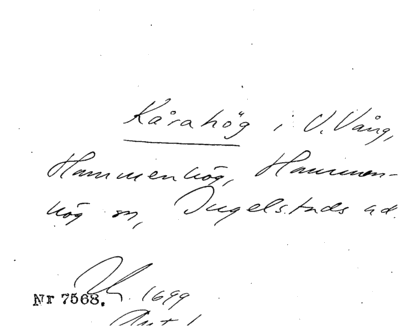 Kårahög i V. Vång,
Hammenhög, Hammen-
hög sn, Ingelstads hd.
Nr 7568. 1699